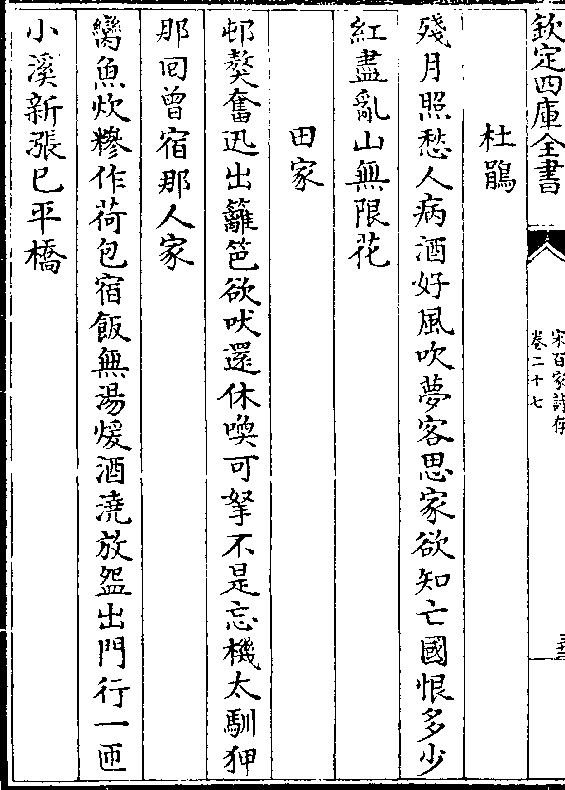 欽定四庫全書
宋百家詩存
卷二十七
杜鵑
殘月照愁人病酒好風吹夢客思家欲知亡國恨多少
紅盡亂山無限花
田家
邨獒奮迅出籬笆欲吠還休喚可拏不是忘機太馴狎
那回曾宿那人家
臠魚炊糝作荷包宿飯無湯煖酒澆放盌出門行一匝
小溪新漲已平橋